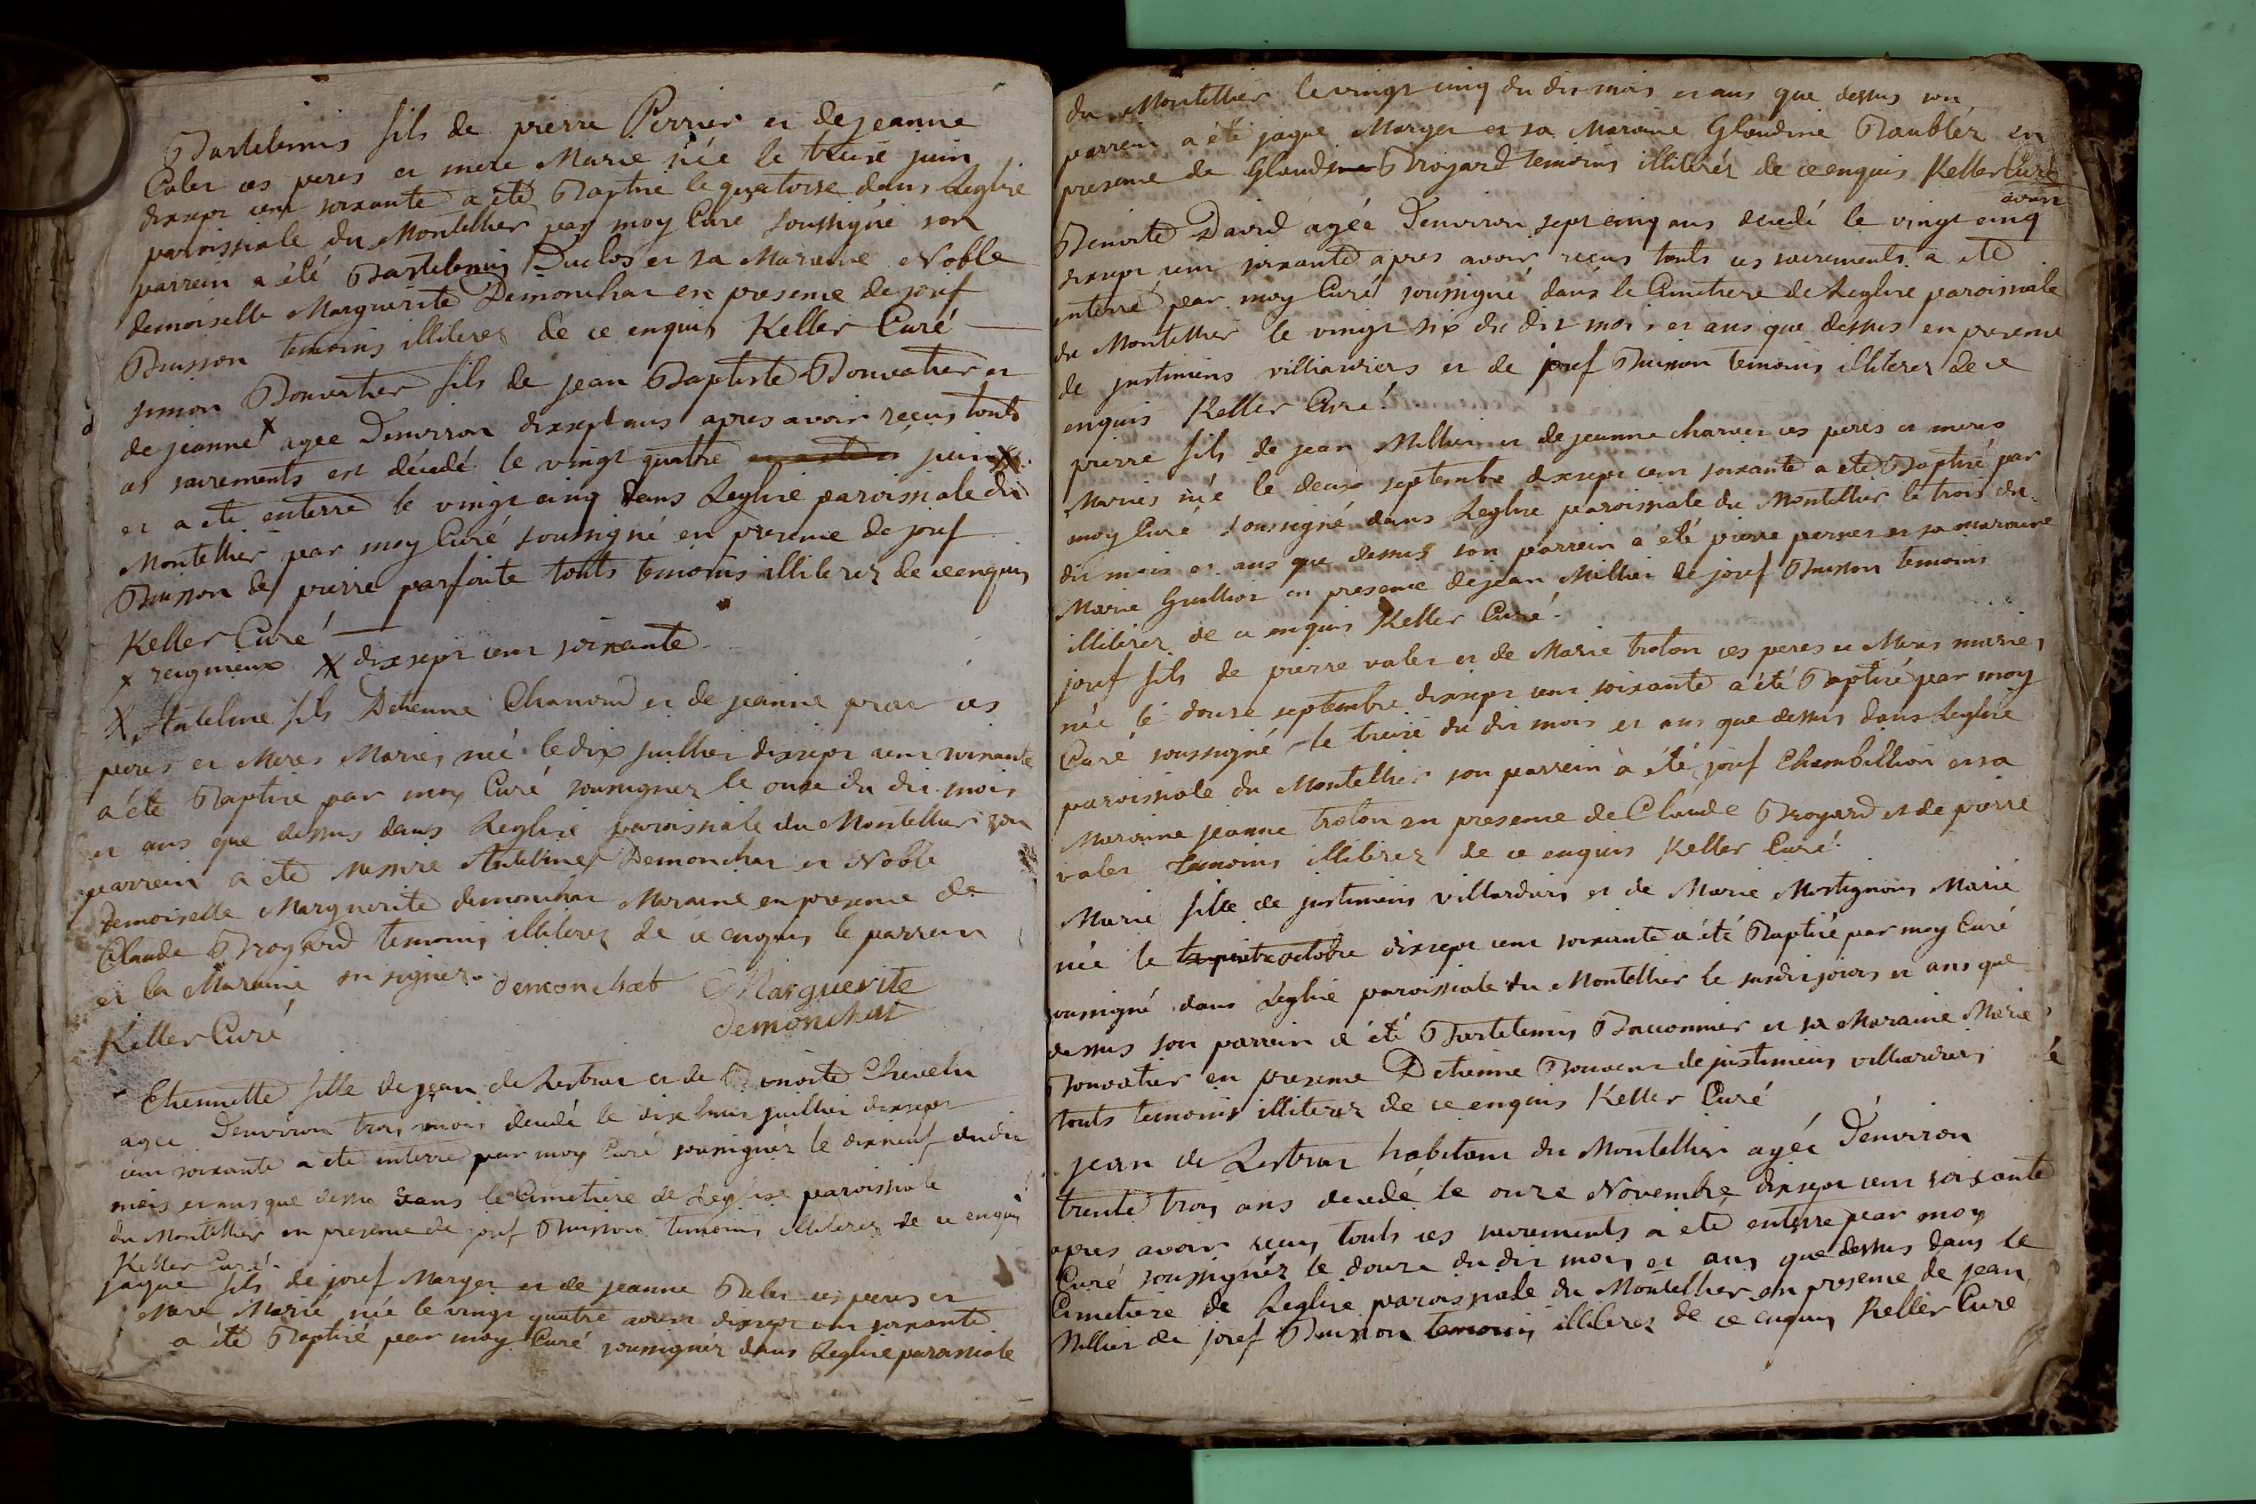 Bartelemis fils de pierre Perrier et de jeanne
Caler ces peres et mere Marie née le treise juin
dixsept cent soixante a été Baptise le quatorse dans Leglise
paroissiale du Montellier par moy Curé soussigné son
parrein a été Bartelemis Duclos et sa Maraine Noble
demoiselle Marguerite Demonchat en presence de josef
Buisson temoins illiterez de ce enquis Keller Curé
simon Bouvatier fils de jean Baptiste Bouvatier et
de jeanne x agee Denviron dixsept ans apres avoir recus touts
ces sacrements est décedé le vingt quatre juin X
et a ete enterré le vingt cinq dans Leglise paroissiale du
Montellier par moy Curé soussigné en presence de josef
Buisson de pierre parfaite touts temoins illiterez de ce enquis
Keller Curé
x reigneux X dixsept cent soixante
X Antelme fils Detienne Chanoud et de jeanne ces
peres et Meres Maries née le dix juillier dixsept cent soixante
a été Baptise par moy Curé soussignez le onze du dit mois
et ans que dessus dans Leglise paroissiale du Montellier son
parrein a ete messire Antelme Demonchat et Noble
Demoiselle Marguerite demonchat Maraine en presence de
Claude Brogard temoins illiterez de ce enquis le parrein
et la Maraine on signez. demonchat Marguerite
Keller Curé demonchat
Etiennette fille de jean de Lestrat et de Benoite Chevelu
agee Denviron trois mois decedé le dix huit juillier dixsept
cent soixante a ete enterre par moy Curé soussignéz le dixneuf dudit
mois et ans que dessu dans le Cimetiere de Leglise paroissiale
du Montellier en presence de josef Buisson temoins illiterez de ce enquis
Keller Curé.
jaque fils de josef Marger et de jeanne ces peres et
Mere Marié née le vingt quatre aoust dixsept cent soixante
a été Baptise par moy Curé soussignéz dans Leglise paroissiale
du Montellier le vingt cinq du dit mois et ans que dessus son
parrein a été jaque Marger et sa Maraine Glaudine en
presence de Glaude Brogard temoins illiteréz de ce enquis Keller Curé
aoust
Benoite David agée Denviron sept cinq ans decedé le vingt cinq
dixsept cent soixante apres avoir recus touts ces sacrements a ete
enterré par moy Curé soussigné dans le Cimetiere de Leglise paroissiale
du Montellier le vingt six du dit mois et ans que dessus en presence
de justiniens villiardiers et de josef Buisson temoins illiterez de ce
enquis Keller Curé.
pierre fils de jean Millier et de jeanne charvet ces peres et meres
Maries née le deux septembre dixsept cent soixante a ete Baptisé par
moy Curé soussigné dans Leglise paroissiale du Montellier le trois du
dit mois et ans que dessus son parrein a été pierre et sa maraine
Marie en presence de jean Millier de josef Buisson temoins
illiterez de ce enquis Keller Curé.
josef fils de pierre valer et de Marie trolon ces peres et Meres maries
née le douze septembre dixsept cent soixante a été Baptisé par moy
Curé soussigné le treise du dit mois et ans que dessus dans Leglise
paroissiale du Montellier son parrein a été josef Chambillion et sa
Maraine jeanne trolon en presence de Claude Brogard et de pierre
valer temoins illiterez de ce enquis Keller Curé.
Marie fille de justiniens villiardiers et de Marie Marié
née le octobre dixsept cent soixante a été Baptisé par moy Curé
soussigné dans Leglise paroissiale du Montellier le susdit jours et ans que
dessus son parrein a été Bartelemis Baccounier et sa Maraine Marie
Bouvatier en presence Detienne de justiniens villiardiers
touts temoins illiterez de ce enquis Keller Curé
jean de Lestrat habitant du Montellier agée Denviron
trente trois ans decedé le onze Novembre dixsept cent soixante
apres avoir recus touts ces sacrements a ete enterre par moy
Curé soussignéz le douze du dit mois et ans que dessus dans le
Cimetiere de Leglise paroissiale du Montellier en presence de jean
Millier de josef Buisson temoins illiterez de ce enquis Keller Curé